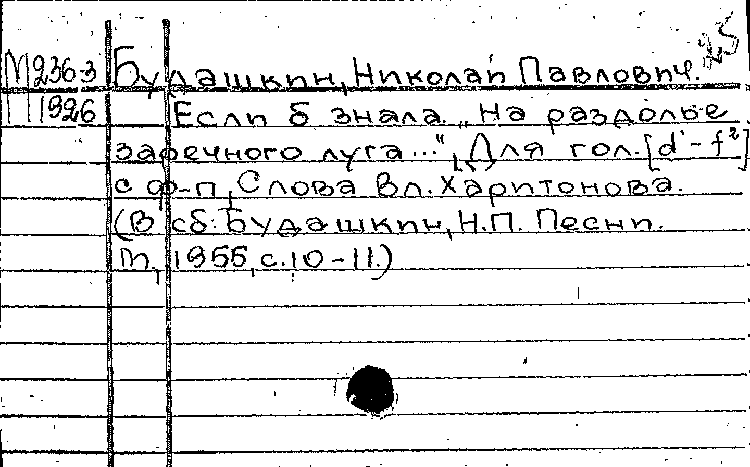 25
М236-3 Будашкин, Николай Павлович.
П1926 Если б знала. „На раздолье
заречного луга..." Для гол. [d¹-f²]
с ф-п, Слова Вл. Харитонова.
(В сб: Будашкин, Н.П. Песни.
М, 1955, с.10-11.)